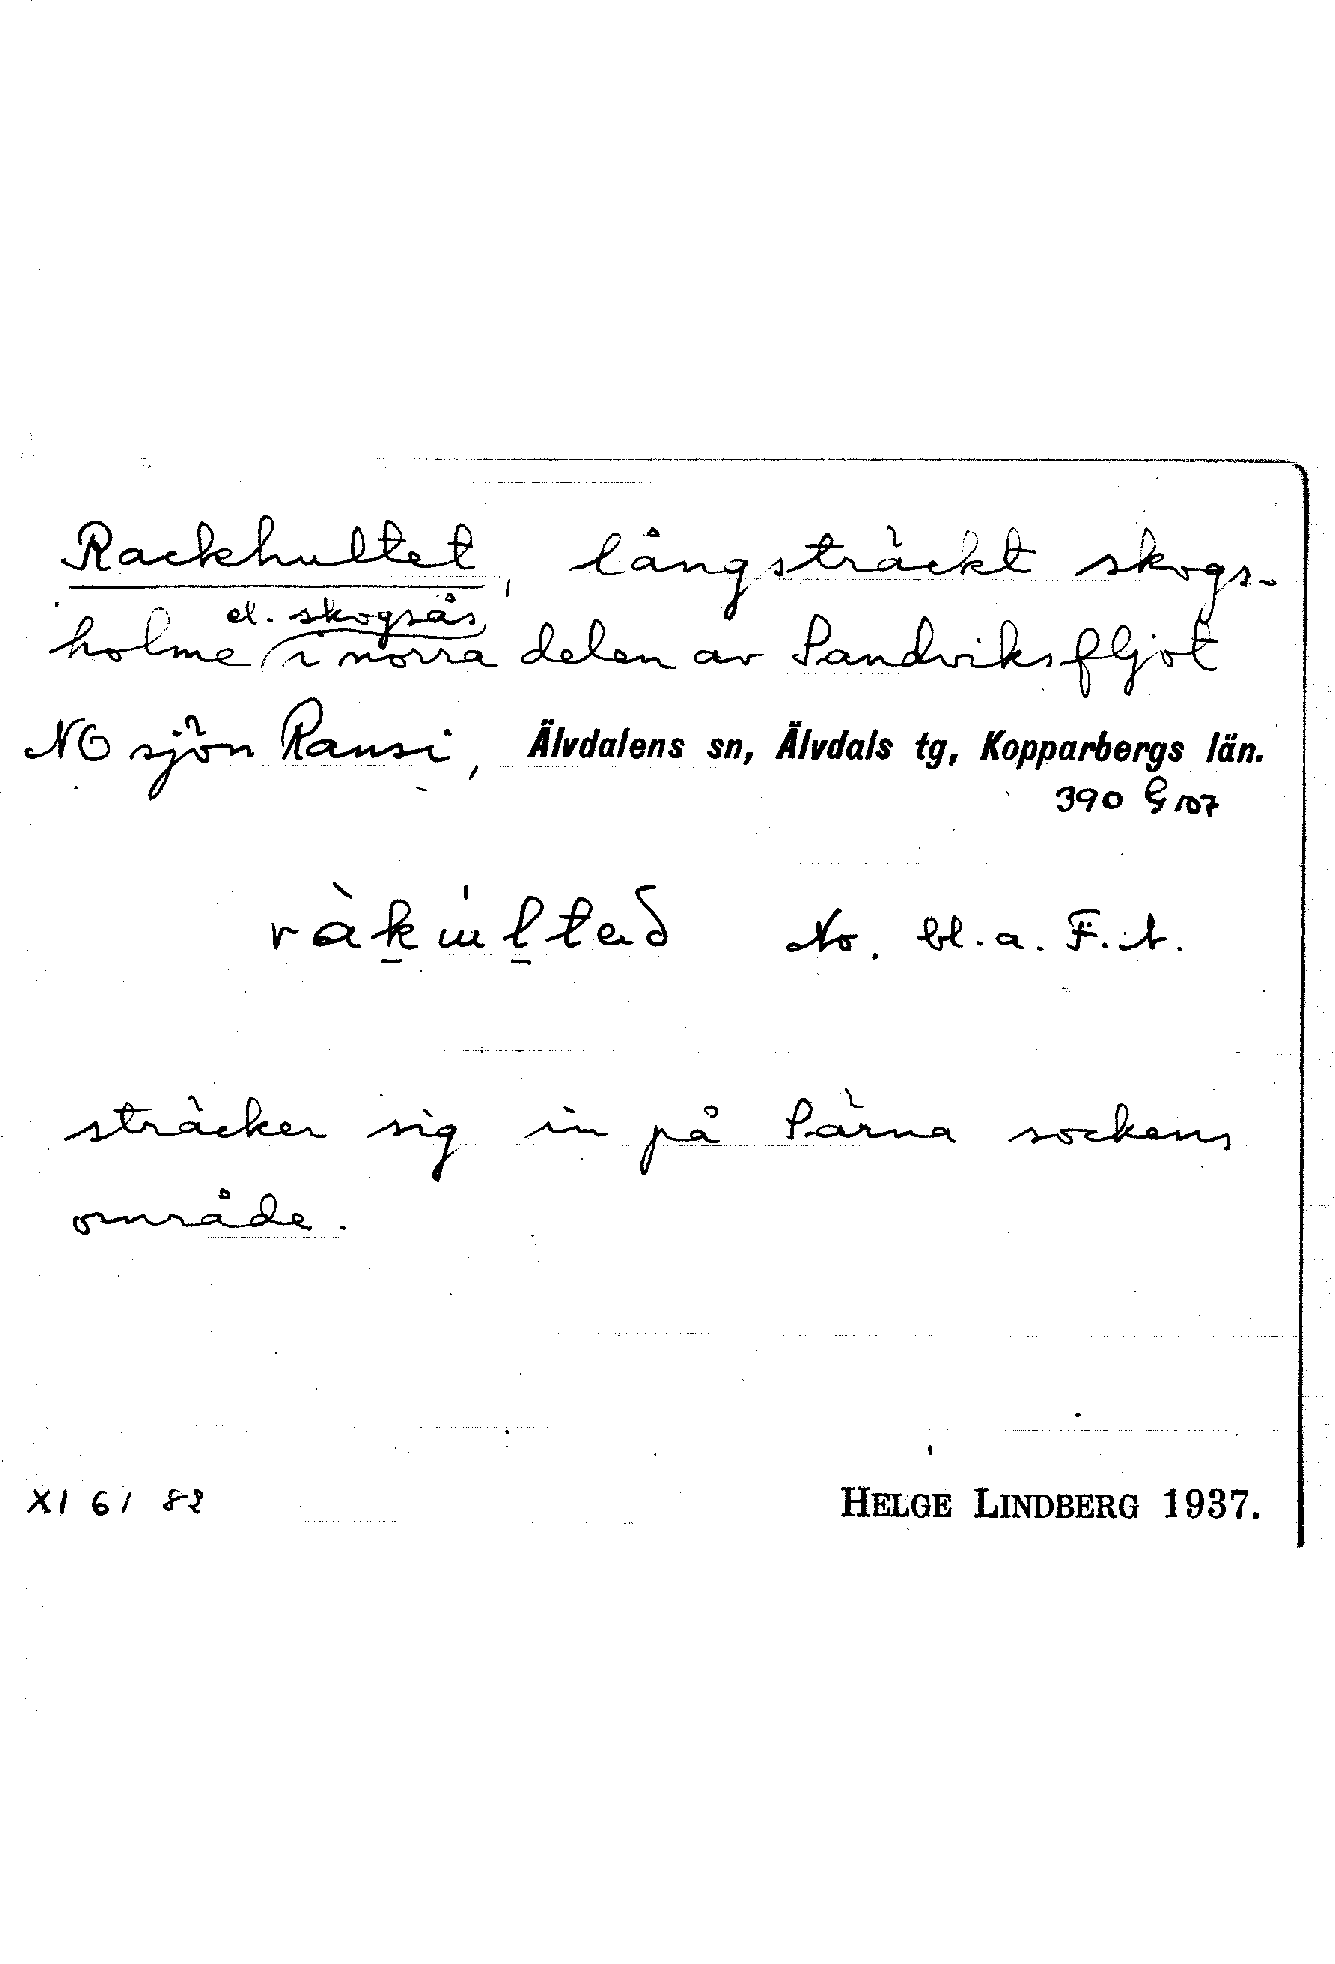 Rackhultet, långsträckt skogs-
el. skogsås
holme i norra delen av Sandviksfljot
NO sjön Ransi, Älvdalens sn, Älvdals tg, Kopparbergs län.
390 G 107
No. bl. a. F. A.
sträcker sig in på Särna sockens
område.
XI 61 82
HELGE LINDBERG 1937.